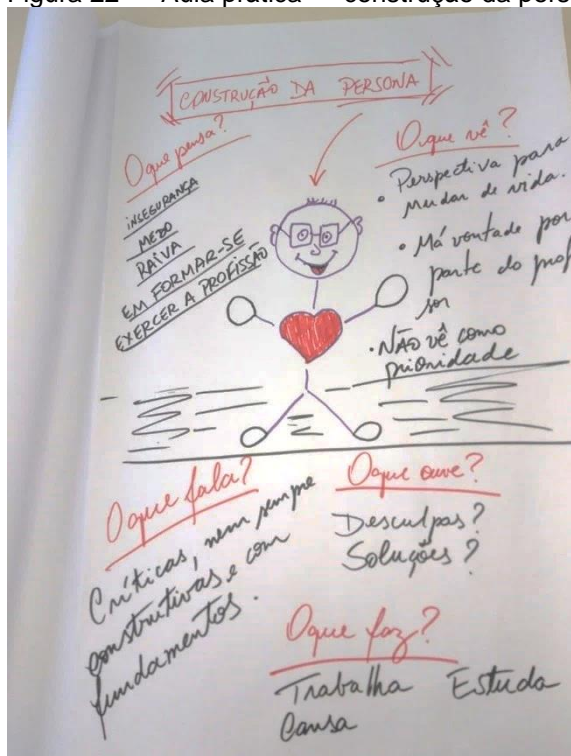 Figura 22 – Aula prática – construção da
CONSTRUÇÃO DA PERSONA
O que pensa?
INSEGURANÇA
MEDO
RAIVA
EM FORMAR-SE
EXERCER A PROFISSÃO
O que vê?
• Perspectiva para
mudar de vida.
• Má vontade por
parte do
• NÃO vê como
prioridade
O que fala?
Críticas, nem sempre
construtivas e com
fundamentos.
O que ouve?
Desculpas?
Soluções?
O que faz?
Trabalha Estuda
Cansa